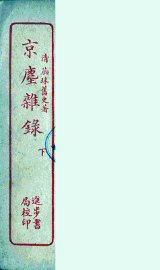 清 蕊珠舊史著
京塵雜錄
下
進步書
局校印